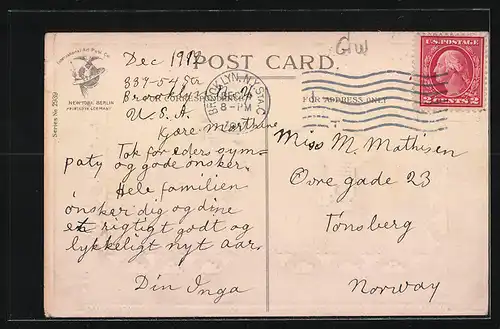 GW
Dec 1918
POST CARD.
International Art Publ. Co.
NEW YORK BERLIN
Series No. 2939
U.S. POSTAGE
2 CENTS 2
BROOKLYN, N.Y. STA. C
DEC
8-PM
FOR ADDRESS ONLY
339-54 Str
Brooklyn N.Y.
U.S.A.
Kjære Marthine
Tak for eders sym-
paty og gode ønsker.
Hele familien
ønsker dig og dine
et rigtigt godt og
lykkeligt nyt aar.
Din Inga
Miss M. Mathisen
Øvre gade 23
Tönsberg
Norway